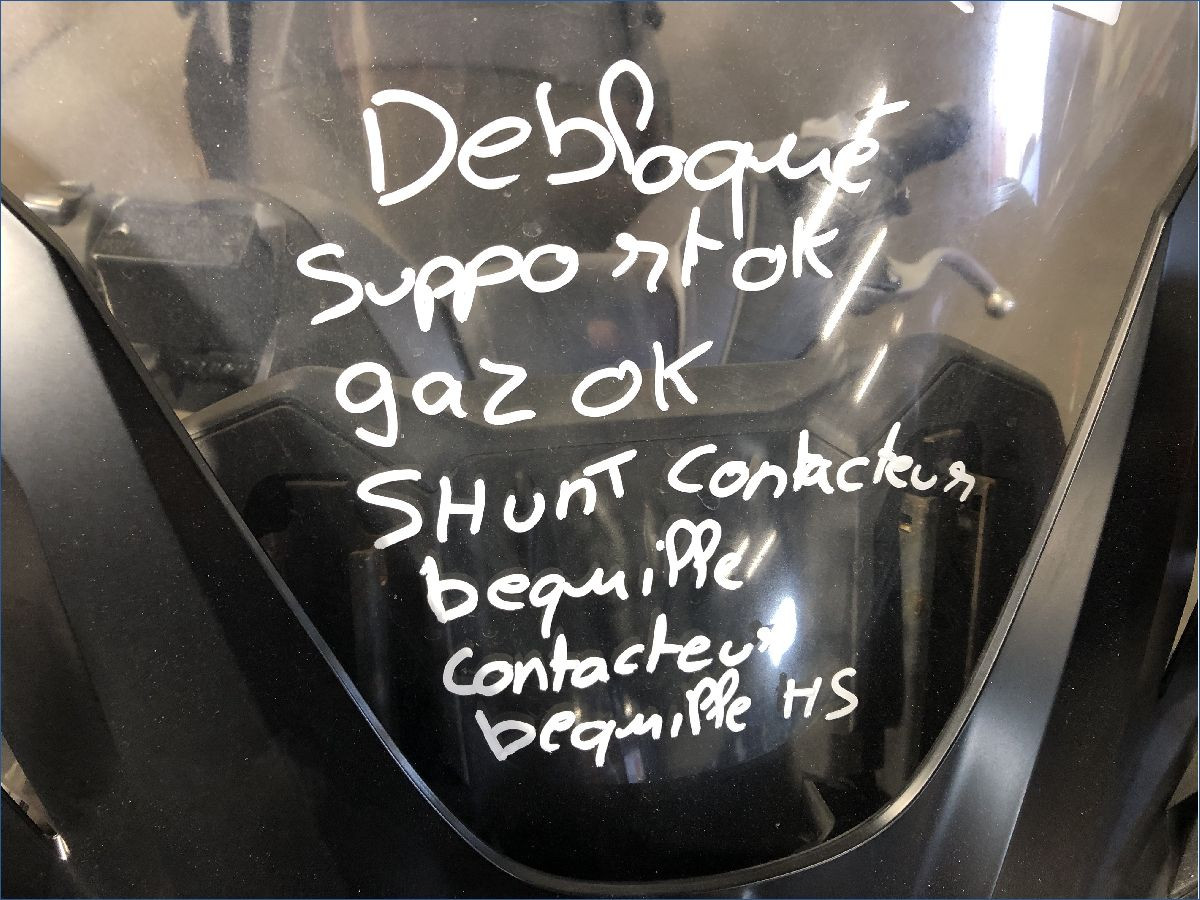 Debloqué
Support ok
gaz ok
SHunT contacteur
bequille
contacteur
bequille HS